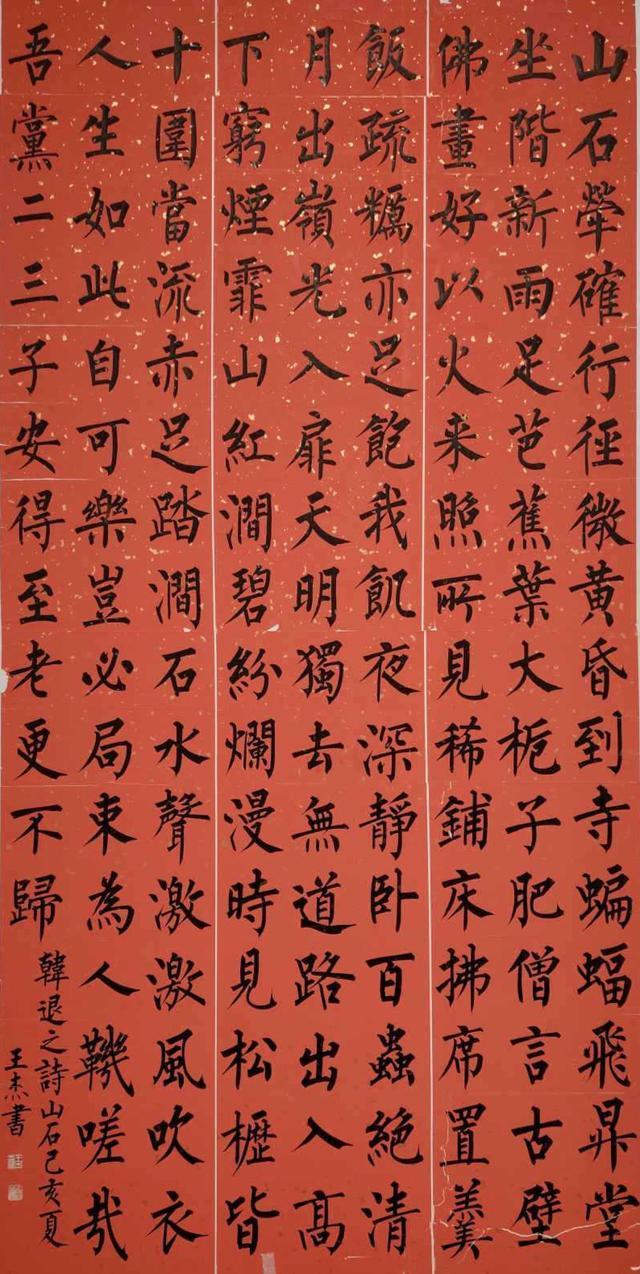 山石犖確行徑微黃昏到寺蝙蝠飛昇堂
坐階新雨足芭蕉葉大栀子肥僧言古壁
佛畫好以火来照所見稀鋪床拂席置羹
飯疏糲亦足飽我飢夜深靜卧百蟲絕清
月出嶺光入扉天明獨去無道路出入高
下窮煙霏山紅澗碧紛爛漫時見松櫪皆
十圍當流赤足踏澗石水聲激激風吹衣
人生如此自可樂豈必局束為人鞿嗟哉
吾黨二三子安得至老更不歸
韓退之詩山石己亥夏
王杰書